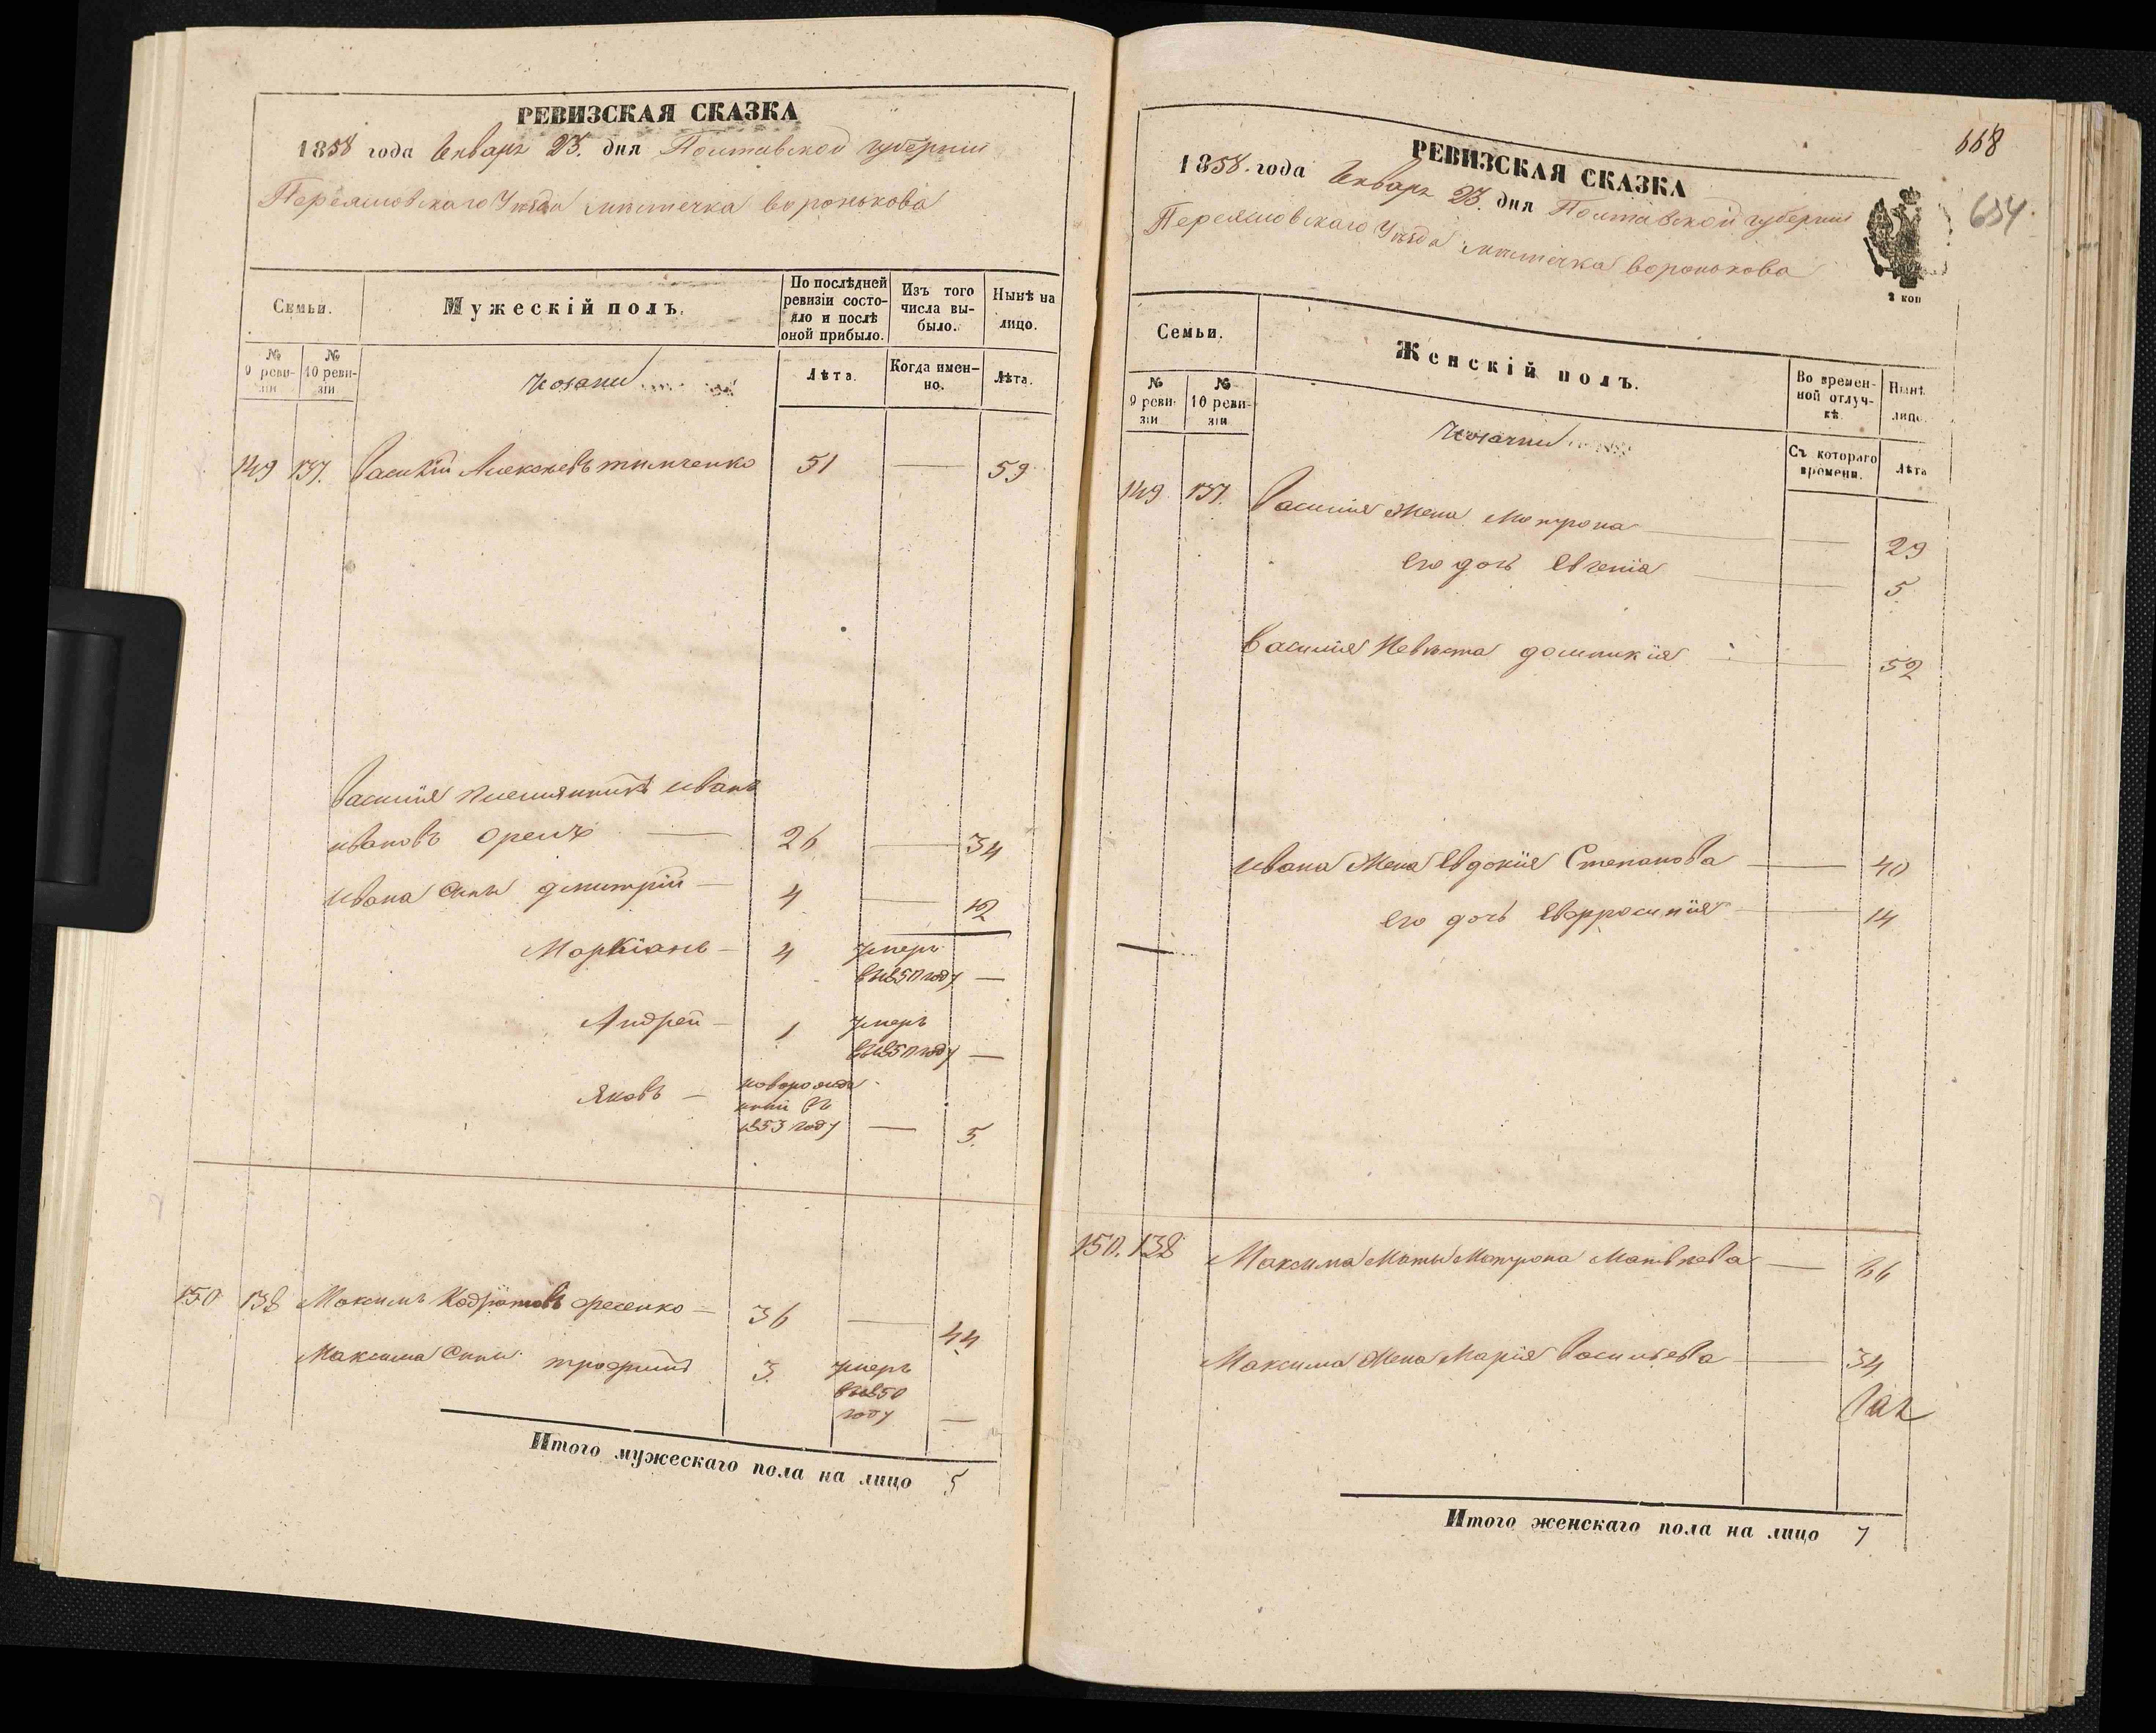 РЕВИЗСКАЯ СКАЗКА
1858 года Генваря 23. дня Полтавской губернии
Переяславскаго Уѣзда мѣстечка воронькова
Семьи.
Мужескій полъ.
По послѣдней ревизіи состояло и послѣ оной прибыло.
Изъ того числа выбыло.
Ныпѣ на лицо.
№ 9 ревизіи
№ 10 ревизіи
Козаки
Лѣта.
Когда именно.
Лѣта.
149 137. Василій Алексѣевъ тимченко 51 — 59
Василія племянникъ иванъ
ивановъ орелъ — 26 — 34
Ивана сынъ дмитрій — 4 — 12
Маркіанъ — 4 умеръ
въ 1850 году —
Андрей — 1 умеръ
въ 1850 году —
Яковъ — новорожде
нный въ
1853 году — 5.
150 138 Максимъ Кодратовъ фесенко — 36 — 44
Максима сынъ трофимъ 3. умеръ
въ 1850
году —
Итого мужескаго пола на лицо 5
668
654.
РЕВИЗСКАЯ СКАЗКА
1858. года Генваря 23. дня Полтавской губерніи
Переяславскаго Уѣзда мѣстечка воронькова
2 коп
Семьи.
Женскій полъ.
Во временной отлучкѣ.
Нынѣ лицо
№ 9 ревизіи
№ 10 ревизіи
Козачки
Съ котораго времени.
Лѣта
149 137. Василія жена Мотрона — 29
его дочь Евгенія — 5.
Василія Невѣста домникія — 52
Ивана жена Евдокія Степанова — 40
его дочь Евфросинія — 14
150. 138 Максима Мать Мотрона Матвѣева — 66
Максима жена Марія Васильева — 34
Итого женскаго пола на лицо 7